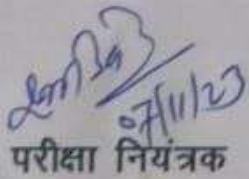 07/11/23
परीक्षा नियंत्रक